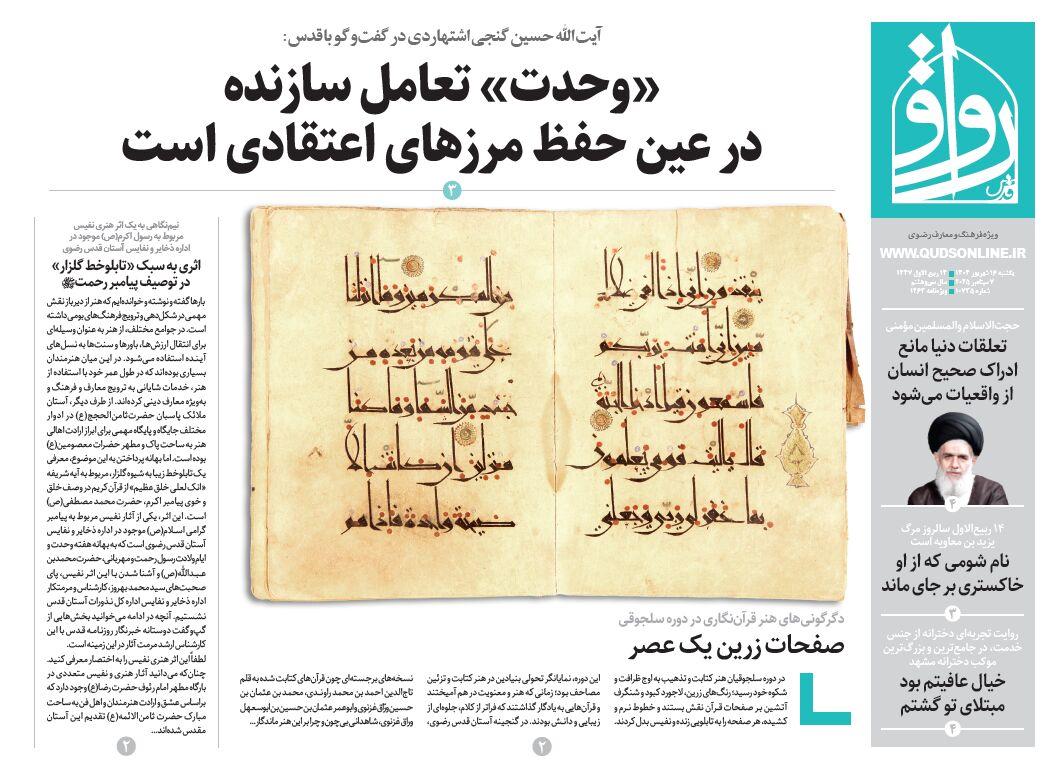 آیت‌الله حسین گنجی اشتهاردی در گفت‌وگو با قدس:
«وحدت» تعامل سازنده
در عین حفظ مرزهای اعتقادی است
۳
رواق
قدس
ویژه فرهنگ و معارف رضوی
WWW.QUDSONLINE.IR
یکشنبه ۱۶ شهریور ۱۴۰۴ ۱۴ ربیع الاول ۱۴۴۷
۷ سپتامبر ۲۰۲۵ سال سی‌وهشتم
شماره ۱۰۷۳۵ ویژه‌نامه ۱۴۶۲
حجت‌الاسلام والمسلمین مؤمنی
تعلقات دنیا مانع
ادراک صحیح انسان
از واقعیات می‌شود
۴
۱۴ ربیع‌الاول سالروز مرگ
یزید بن معاویه است
نام شومی که از او
خاکستری بر جای ماند
۳
روایت تجربه‌ای دخترانه از جنس
خدمت، در جامع‌ترین و بزرگ‌ترین
موکب دخترانه مشهد
خیال عافیتم بود
مبتلای تو گشتم
۴
نیم‌نگاهی به یک اثر هنری نفیس
مربوط به رسول اکرم(ص) موجود در
اداره ذخایر و نفایس آستان قدس رضوی
اثری به سبک «تابلوخط گلزار»
در توصیف پیامبر رحمتﷺ
بارها گفته و نوشته و خوانده‌ایم که هنر از دیرباز نقش
مهمی در شکل‌دهی و ترویج فرهنگ‌های بومی داشته
است. در جوامع مختلف، از هنر به عنوان وسیله‌ای
برای انتقال ارزش‌ها، باورها و سنت‌ها به نسل‌های
آینده استفاده می‌شود. در این میان هنرمندان
بسیاری بوده‌اند که در طول عمر خود با استفاده از
هنر، خدمات شایانی به ترویج معارف و فرهنگ و
به‌ویژه معارف دینی کرده‌اند. از طرف دیگر، آستان
ملائک پاسبان حضرت ثامن‌الحجج(ع) در ادوار
مختلف جایگاه و پایگاه مهمی برای ابراز ارادت اهالی
هنر به ساحت پاک و مطهر حضرات معصومین(ع)
بوده است. اما بهانه پرداختن به این موضوع، معرفی
یک تابلوخط زیبا به شیوه گلزار، مربوط به آیه شریفه
«انک لعلی خلق عظیم» از قرآن کریم در وصف خلق
و خوی پیامبر اکرم، حضرت محمد مصطفی(ص)
است. این اثر، یکی از آثار نفیس مربوط به پیامبر
گرامی اسلام(ص) موجود در اداره ذخایر و نفایس
آستان قدس رضوی است که به بهانه هفته وحدت و
ایام ولادت رسول رحمت و مهربانی، حضرت محمد بن
عبدالله(ص) و آشنا شدن با این اثر نفیس، پای
صحبت‌های سید محمد بهروز، کارشناس و مرمتکار
اداره ذخایر و نفایس اداره کل نذورات آستان قدس
نشستیم. آنچه در ادامه می‌خوانید بخش‌هایی از
گپ‌وگفت دوستانه خبرنگار روزنامه قدس با این
کارشناس ارشد مرمت آثار در این زمینه است.
لطفاً این اثر هنری نفیس را به اختصار معرفی کنید.
چنان‌که می‌دانید آثار هنری و نفیس متعددی در
بارگاه مطهر امام رئوف حضرت رضا(ع) وجود دارد که
براساس عشق و ارادت هنرمندان و اهل فن به ساحت
مبارک حضرت ثامن الائمه(ع) تقدیم این آستان
مقدس شده‌اند...
۲
دگرگونی‌های هنر قرآن‌نگاری در دوره سلجوقی
صفحات زرین یک عصر
در دوره سلجوقیان هنر کتابت و تذهیب به اوج ظرافت و
شکوه خود رسید؛ رنگ‌های زرین، لاجورد کبود و شنگرف
آتشین بر صفحات قرآن نقش بستند و خطوط نرم و
کشیده، هر صفحه را به تابلویی زنده و نفیس بدل کردند.
این دوره، نمایانگر تحولی بنیادین در هنر کتابت و تزئین
مصاحف بود؛ زمانی که هنر و معنویت در هم آمیختند
و قرآن‌هایی به یادگار گذاشتند که فراتر از کلام، جلوه‌ای از
زیبایی و دانش بودند. در گنجینه آستان قدس رضوی،
نسخه‌های برجسته‌ای چون قرآن‌های کتابت شده به قلم
تاج‌الدین احمد بن محمد راوندی، محمد بن عثمان بن
حسین وراق غزنوی و ابوعمر عثمان بن حسین بن ابوسعهل
وراق غزنوی، شاهدانی بی‌چون و چرا بر این هنر ماندگار...
۲